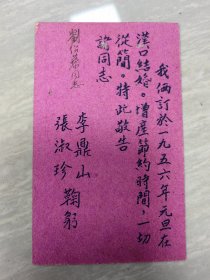 我倆訂於一九五六年元旦在
漢口結婚。增產節約時間，一切
從簡。特此敬告
諸同志
李鼎山
張淑珍 鞠躬
劉
同志